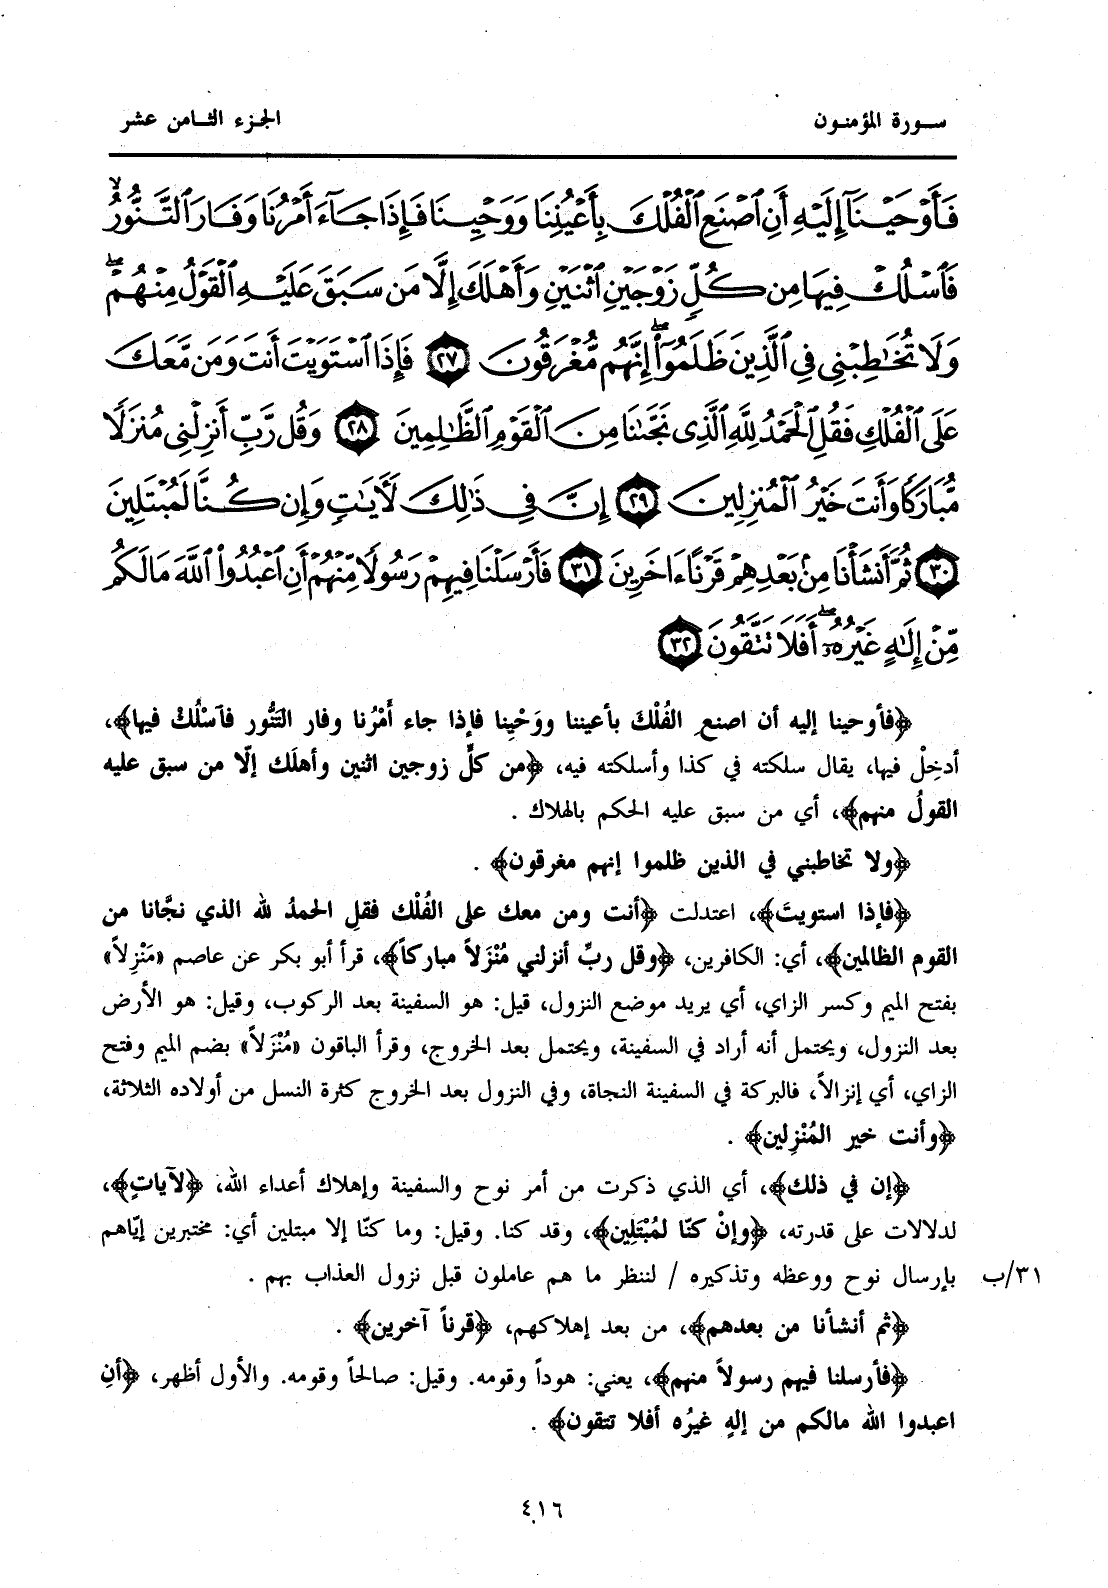 سورة المؤمنون
الجزء الثامن عشر
فَأَوْحَيْنَآ إِلَيْهِ أَنِ ٱصْنَعِ ٱلْفُلْكَ بِأَعْيُنِنَا وَوَحْيِنَا فَإِذَا جَآءَ أَمْرُنَا وَفَارَ ٱلتَّنُّورُ ۙ
فَٱسْلُكْ فِيهَا مِن كُلٍّ زَوْجَيْنِ ٱثْنَيْنِ وَأَهْلَكَ إِلَّا مَن سَبَقَ عَلَيْهِ ٱلْقَوْلُ مِنْهُمْ ۖ
وَلَا تُخَٰطِبْنِى فِى ٱلَّذِينَ ظَلَمُوٓا۟ ۖ إِنَّهُم مُّغْرَقُونَ ٢٧ فَإِذَا ٱسْتَوَيْتَ أَنتَ وَمَن مَّعَكَ
عَلَى ٱلْفُلْكِ فَقُلِ ٱلْحَمْدُ لِلَّهِ ٱلَّذِى نَجَّىٰنَا مِنَ ٱلْقَوْمِ ٱلظَّٰلِمِينَ ٢٨ وَقُل رَّبِّ أَنزِلْنِى مُنزَلًا
مُّبَارَكًا وَأَنتَ خَيْرُ ٱلْمُنزِلِينَ ٢٩ إِنَّ فِى ذَٰلِكَ لَءَايَٰتٍ وَإِن كُنَّا لَمُبْتَلِينَ
٣٠ ثُمَّ أَنشَأْنَا مِنۢ بَعْدِهِمْ قَرْنًا ءَاخَرِينَ ٣١ فَأَرْسَلْنَا فِيهِمْ رَسُولًا مِّنْهُمْ أَنِ ٱعْبُدُوا۟ ٱللَّهَ مَا لَكُم
مِّنْ إِلَٰهٍ غَيْرُهُۥٓ ۖ أَفَلَا تَتَّقُونَ ٣٢
﴿فأوحينا إليه أن اصنعِ الفُلْكَ بأعيننا ووَحْيِنا فإذا جاء أَمْرُنا وفار التنُّور فآسْلُكْ فيها﴾،
أدخِلْ فيها، يقال سلكته في كذا وأسلكته فيه، ﴿من كلٍّ زوجين اثنين وأهلَك إلّا من سبق عليه
القولُ منهم﴾، أي من سبق عليه الحكم بالهلاك .
﴿ولا تخاطبني في الذين ظلموا إنهم مغرقون﴾ .
﴿فإذا استويتَ﴾، اعتدلت ﴿أنت ومن معك على الفُلْك فقلِ الحمدُ لله الذي نجَّانا من
القوم الظالمين﴾، أي: الكافرين، ﴿وقل ربِّ أنزلني مُنْزَلاً مباركاً﴾، قرأ أبو بكر عن عاصم «مَنْزِلاً»
بفتح الميم وكسر الزاي، أي يريد موضع النزول، قيل: هو السفينة بعد الركوب، وقيل: هو الأرض
بعد النزول، ويحتمل أنه أراد في السفينة، ويحتمل بعد الخروج، وقرأ الباقون «مُنْزَلاً» بضم الميم وفتح
الزاي، أي إنزالاً، فالبركة في السفينة النجاة، وفي النزول بعد الخروج كثرة النسل من أولاده الثلاثة،
﴿وأنت خير المُنْزِلين﴾ .
﴿إن في ذلك﴾، أي الذي ذكرت من أمر نوح والسفينة وإهلاك أعداء الله، ﴿لآياتٍ﴾،
لدلالات على قدرته، ﴿وإنْ كنّا لمُبْتَلِين﴾، وقد كنا. وقيل: وما كنّا إلا مبتلين أي: مختبرين إيّاهم
بإرسال نوح ووعظه وتذكيره / لننظر ما هم عاملون قبل نزول العذاب بهم .
٣١/ب
﴿ثم أنشأنا من بعدهم﴾، من بعد إهلاكهم، ﴿قرناً آخرين﴾ .
﴿فأرسلنا فيهم رسولاً منهم﴾، يعني: هوداً وقومه. وقيل: صالحاً وقومه. والأول أظهر، ﴿أنِ
اعبدوا الله مالكم من إلهٍ غيرُه أفلا تتقون﴾ .
٤١٦